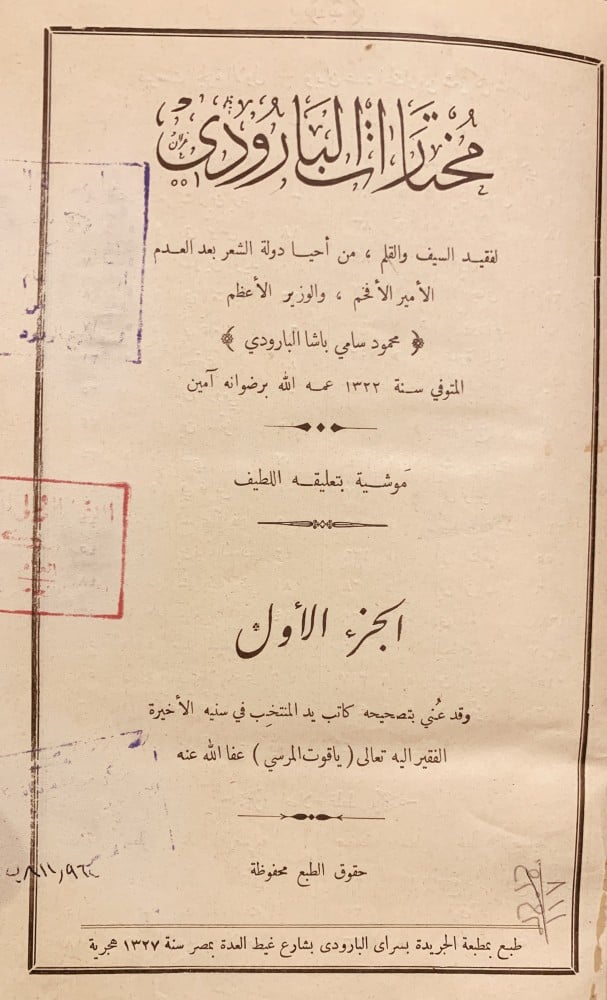 مُختَارَات البَارُودِي
لفقيد السيف والقلم ، من أحيا دولة الشعر بعد العدم
الأمير الأفخم ، والوزير الأعظم
﴿ محمود سامي باشا البارودي ﴾
المتوفي سنة ١٣٢٢ عمه الله برضوانه آمين
مَوشية بتعليقه اللطيف
الجزء الأول
وقد عُني بتصحيحه كاتب يد المنتخِب في سنيه الأخيرة
الفقير اليه تعالى ( ياقوت المرسي ) عفا الله عنه
حقوق الطبع محفوظة
١١٧
طبع بمطبعة الجريدة بسراى البارودى بشارع غيط العدة بمصر سنة ١٣٢٧ هجرية